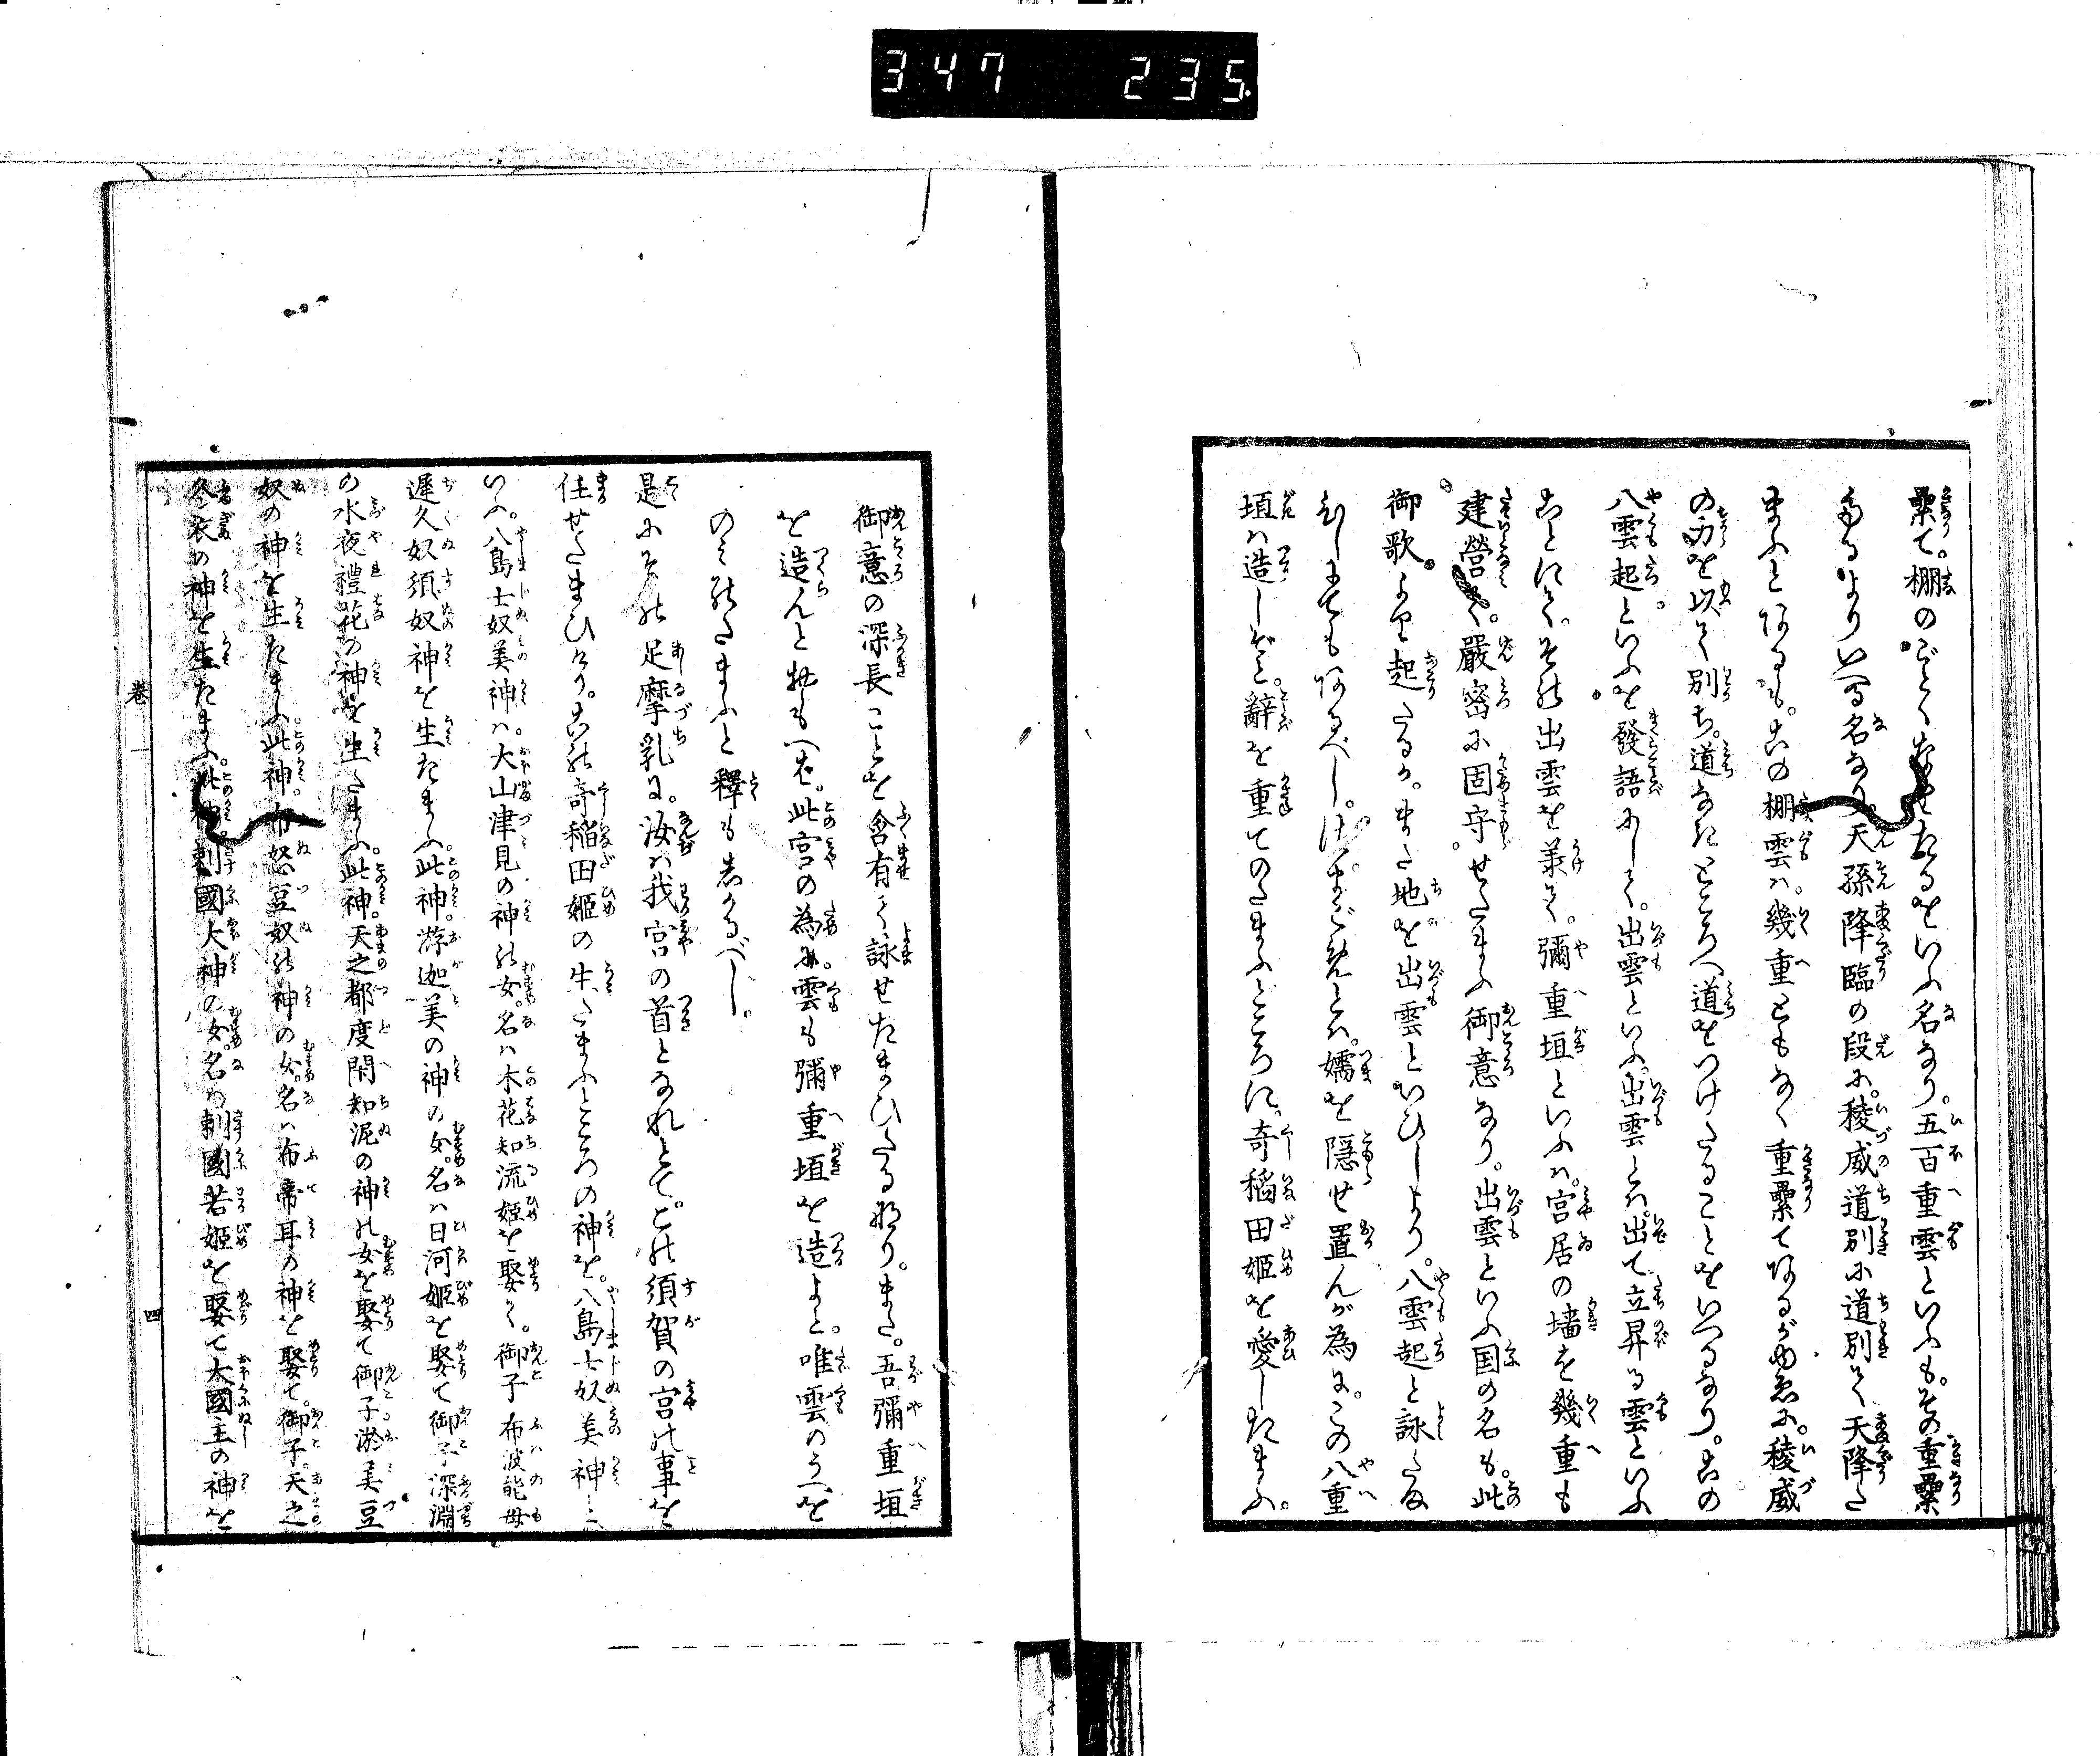 347 235
纍て。棚のごとくなしたるをいふ名なり。五百重雲といふも。その重纍
なるよりいへる名なり。天孫降臨の段に。稜威道別に道別て天降た
まふとあるも。この棚雲は。幾重ともなく重纍てあるがゆゑに。稜威
の力を以て別ち。道なきところへ道をつけたることをいへるなり。この
八雲起といふを發語にして。出雲といふ。出雲とは出て立昇る雲といふ
ことにて。その出雲を美て。彌重垣といふは。宮居の墻を幾重も
建營て。嚴密に固守せたまふ御意なり。出雲といふ国の名も。此
御歌より起たるか。また地を出雲といひしより。八雲起と詠たま
ひしにてもあるべし。けだ。まごめとは。嬬を隱せ置んが為に。この八重
垣は造しぞと。辭を重てのたまふところに。奇稻田姫を愛したまふ。
御意の深長ことを含有て詠せたまひたる物り。また。吾彌重垣
を造んと牡もへば。此宮の為に。雲も彌重垣を造よと。唯雲のうへを
のみのたまふと釋もあるべし。
是にその足摩乳に。汝は我宮の首となれとて。その須賀の宮の事を
任せたまひけり。この奇稲田姫の生たまふところの神を。八島士奴美神と
いへ。八島士奴美神は。大山津見の神の女。名は木花知流姫を娶て。御子布波能母
遲久奴須奴神を生たまふ。此神。游迦美の神の女。名は日河姫を娶て御子深淵
の水夜禮花の神を生たまふ。此神。天之都度閇知泥の神の女を娶て御子淤美豆
奴の神を生たまふ。此神。布怒豆奴の神の女。名は布帝耳の神を娶て。御子。天之
冬衣の神を生たまふ。此神。刺國大神の女。名は刺國若姫を娶て大國主の神を
卷一
四